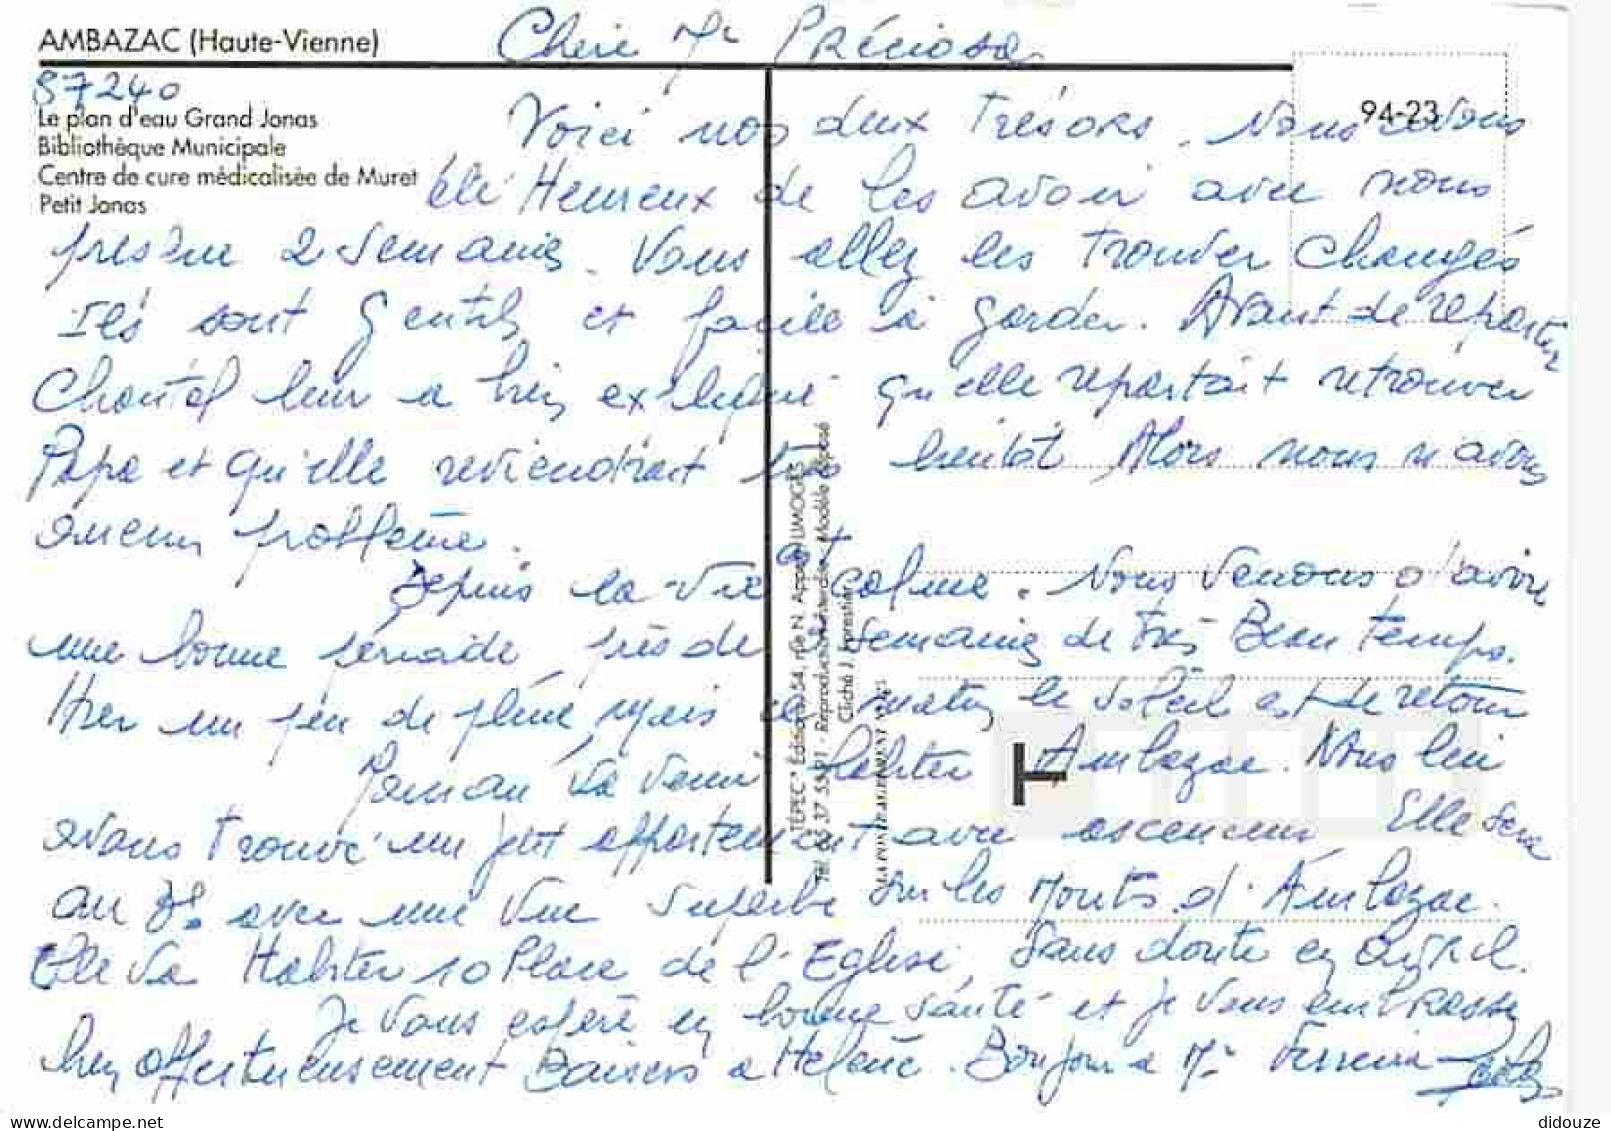 AMBAZAC (Haute-Vienne)
87240
Le plan d'eau Grand Jonas
Bibliothèque Municipale
Centre de cure médicalisée de Muret
Petit Jonas
94-23
Chère Me Préciosa
Voici nos deux Trésors. Nous avons
été Heureux de les avoir avec nous
presque 2 semaines. Vous allez les Trouver changés
Ils sont gentils et facile à garder. Avant de repartir
Chantal leur a bien expliqué qu'elle repartait retrouver
Papa et qu'elle reviendrait très bientôt Alors nous n'avons
aucun problème.
Depuis la vie est calme. Nous venons d'avoir
une bonne période près de semaines de très Beau Temps.
Hier un peu de pluie mais ce matin le soleil est de retour
Maman va venir habiter Ambazac. Nous lui
avons trouvé un petit appartement avec ascenseur Elle sera
au avec une vue superbe sur les Monts d'Ambazac.
Elle va Habiter 10 Place de l'Eglise, sans doute en Avril.
Je vous espère en bonne santé et je vous embrasse
bien affectueusement Baisers à Hélène. Bonjour à Mr Ferreira
TÉPEC* Éditions, 54, rue N. Appert LIMOGES
Reproduction interdite - Modèle déposé
Cliché J.
didouze